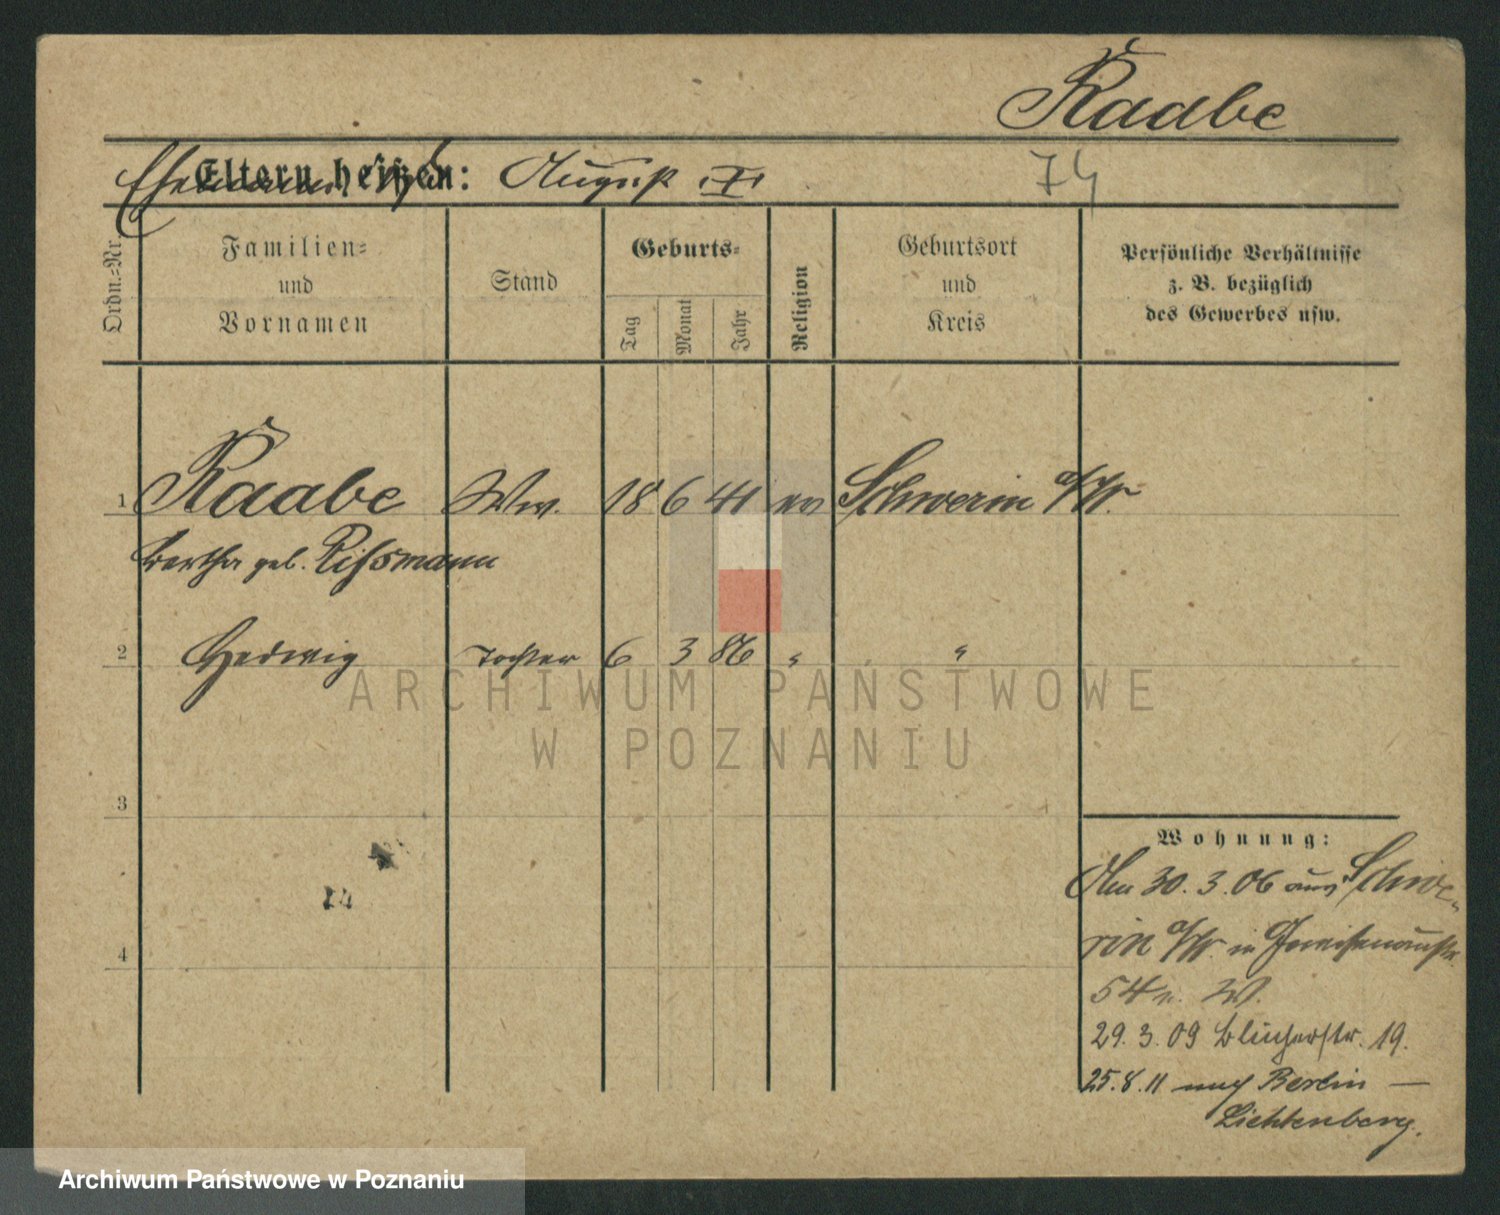 Raabe
Eltern heißen: August
74
Ordn.=Nr.
Familien=
und
Vornamen
Stand
Geburts=
Tag
Monat
Jahr
Religion
Geburtsort
und
Kreis
Persönliche Verhältnisse
z. B. bezüglich
des Gewerbes usw.
1 Raabe Ww. 18 6 41 ev Schwerin a/W.
Bertha geb. Rissmann
2 Hedwig Tochter 6 3 86 " "
3
4
Wohnung:
Am 30. 3. 06 aus Schwe-
rin a/W. in Gneisenaustr.
54 W.
29. 3. 09 Blücherstr. 19.
25. 8. 11 nach Berlin —
Lichtenberg.
ARCHIWUM PAŃSTWOWE
W POZNANIU
Archiwum Państwowe w Poznaniu